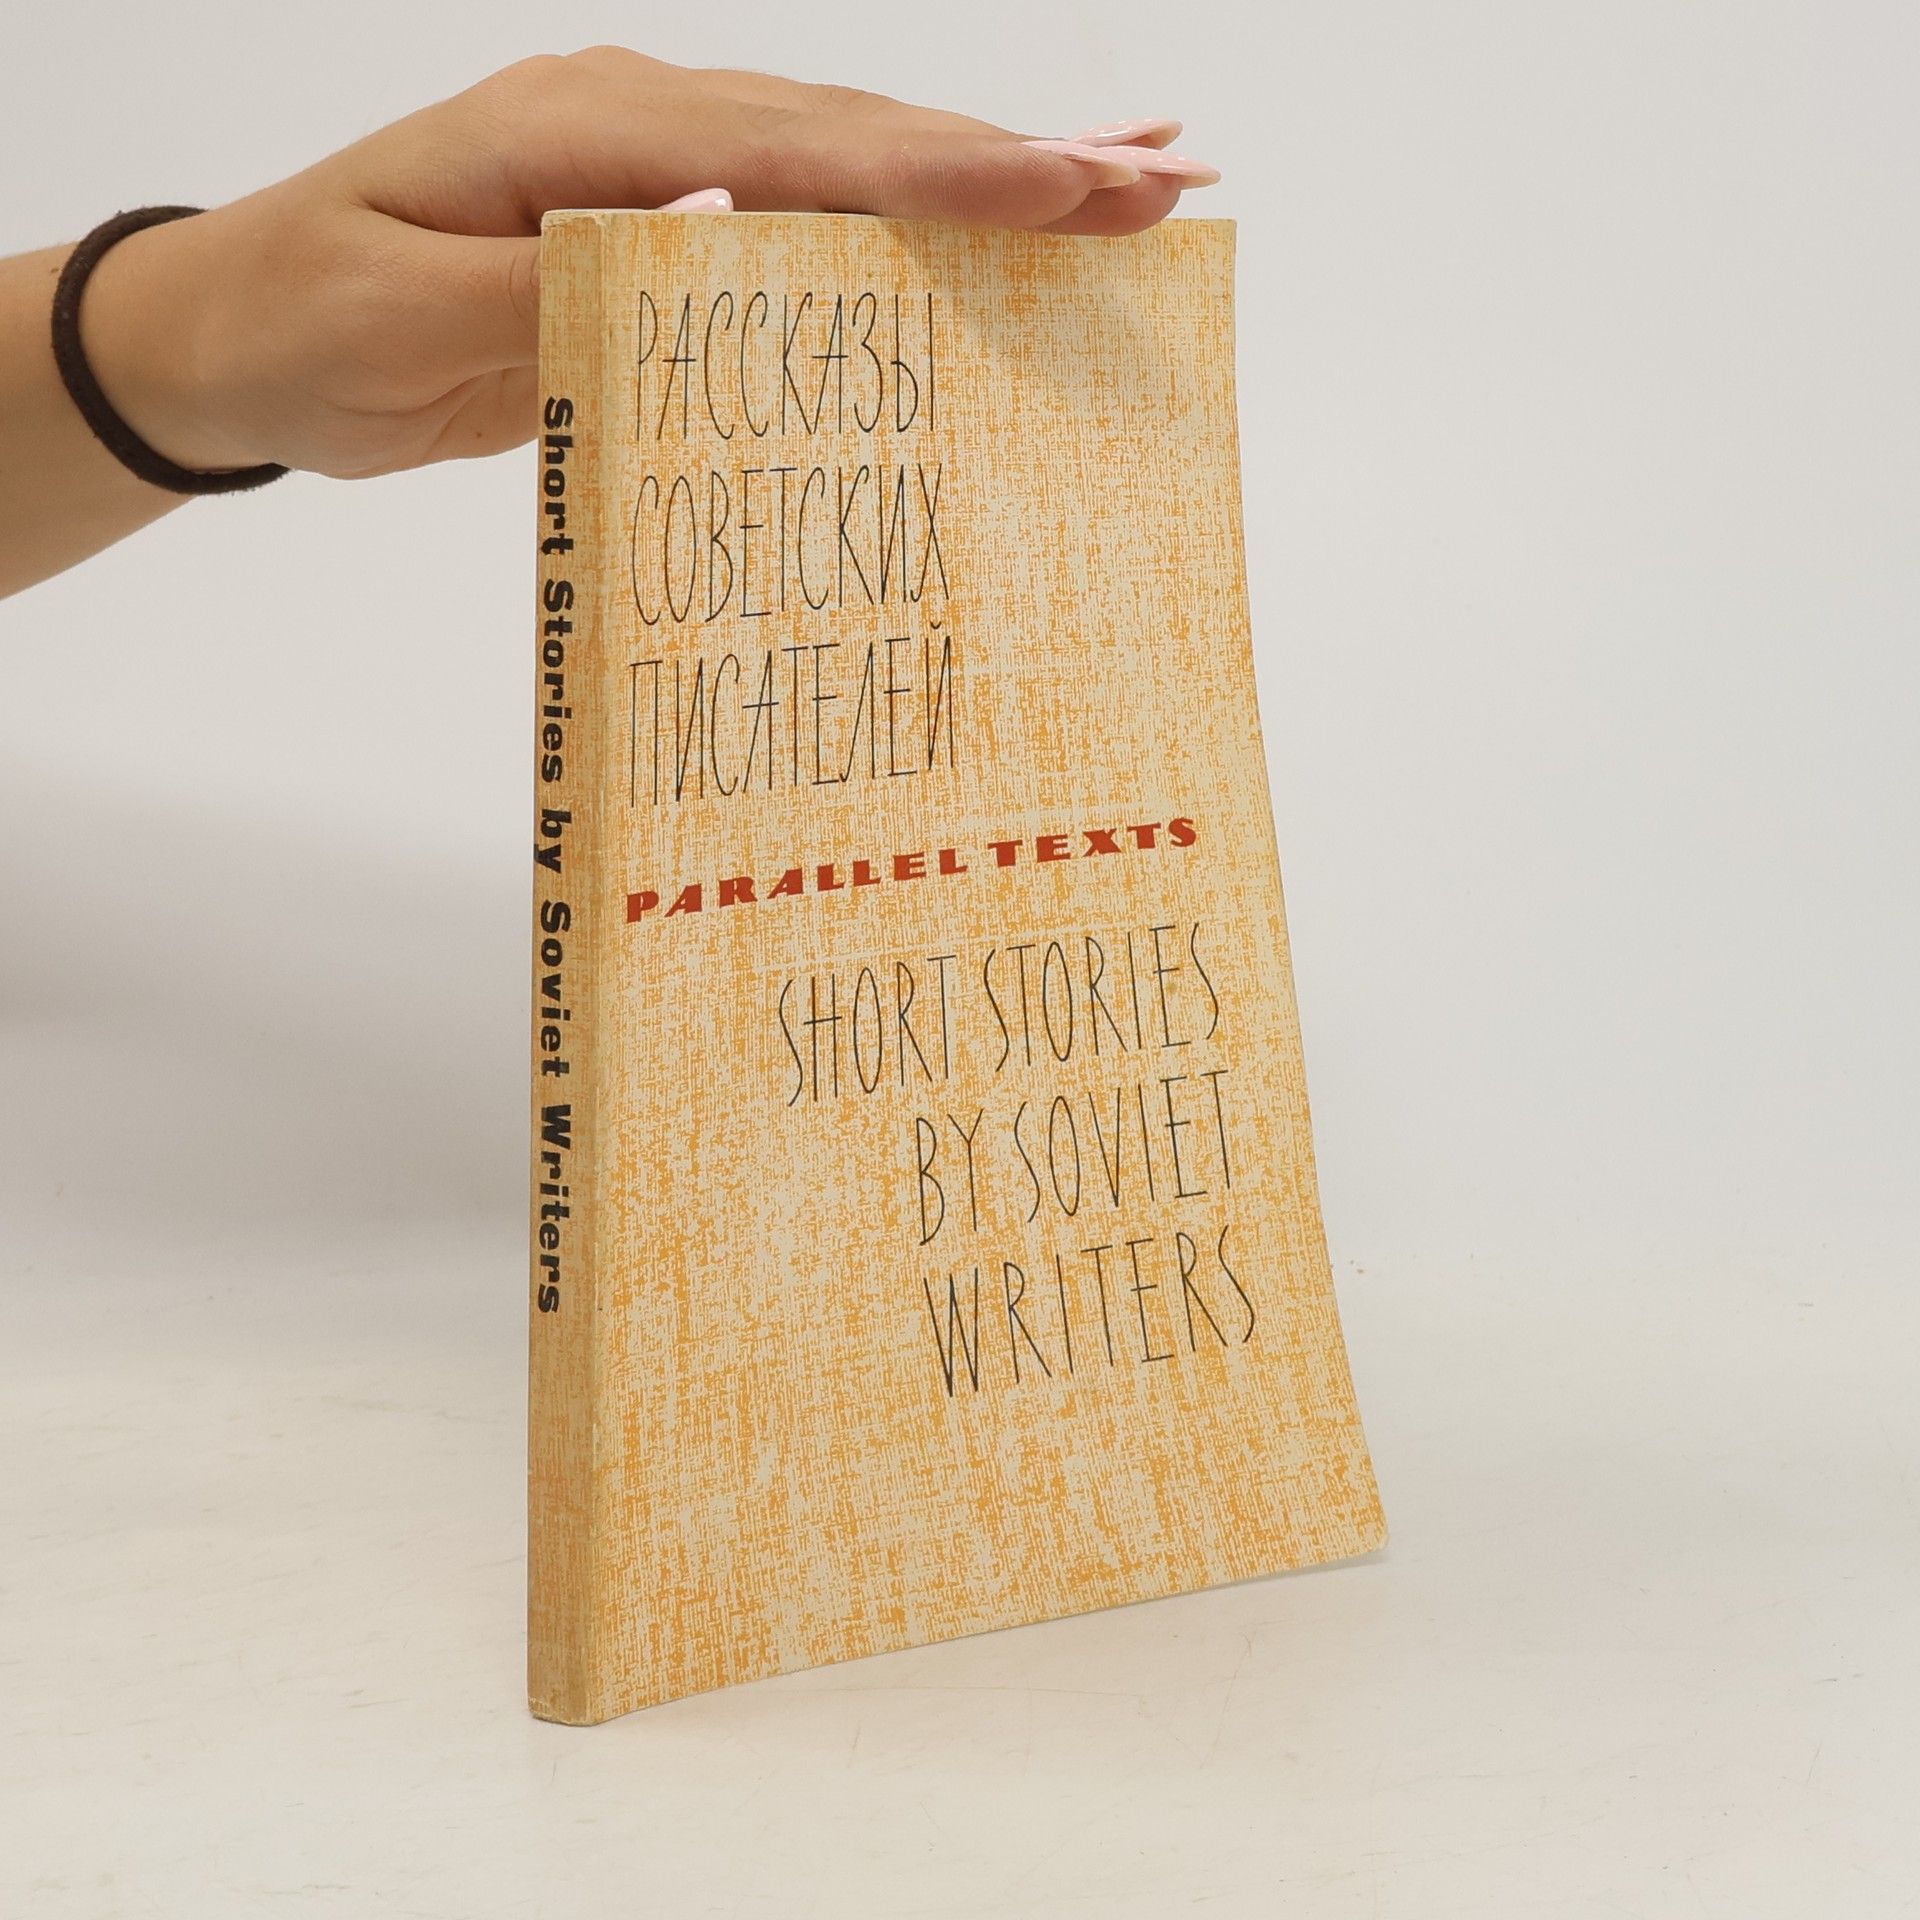 Short Stories by Soviet Writers
РАССКАЗЫ
СОВЕТСКИХ
ПИСАТЕЛЕЙ
PARALLEL TEXTS
SHORT STORIES
BY SOVIET
WRITERS